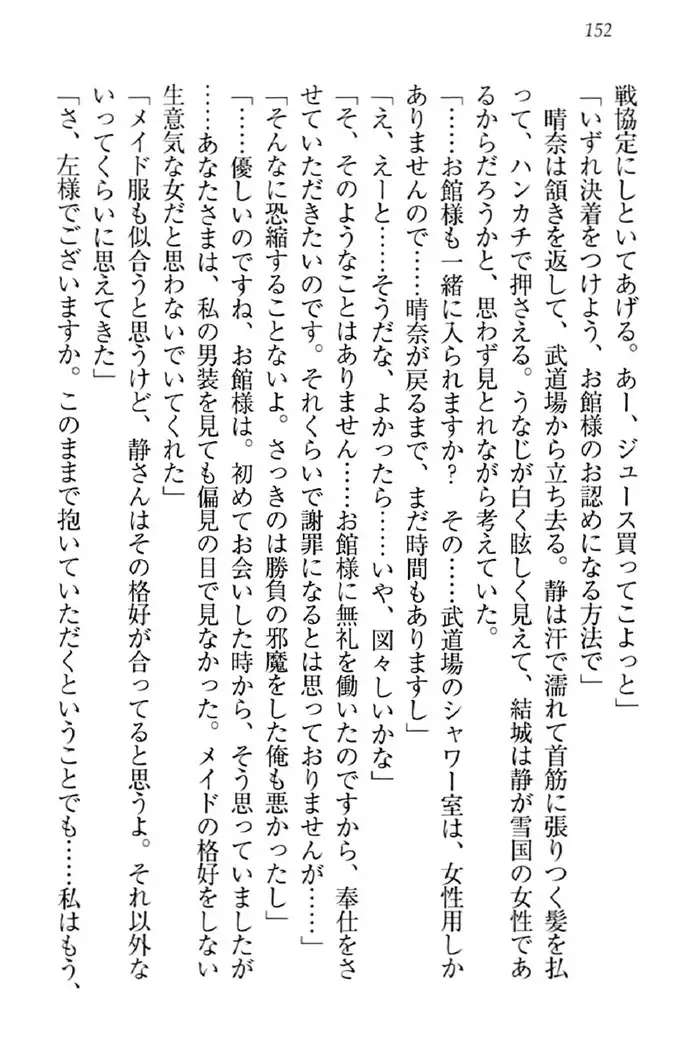 152
戦協定にしといてあげる。あー、ジュース買ってこよっと」
「いずれ決着をつけよう、お館様のお認めになる方法で」
　晴奈は頷きを返して、武道場から立ち去る。静は汗で濡れて首筋に張りつく髪を払
って、ハンカチで押さえる。うなじが白く眩しく見えて、結城は静が雪国の女性であ
るからだろうかと、思わず見とれながら考えていた。
「……お館様も一緒に入られますか？　その……武道場のシャワー室は、女性用しか
ありませんので……晴奈が戻るまで、まだ時間もありますし」
「え、えーと……そうだな、よかったら……いや、図々しいかな」
「そ、そのようなことはありません……お館様に無礼を働いたのですから、奉仕をさ
せていただきたいのです。それくらいで謝罪になるとは思っておりませんが……」
「そんなに恐縮することないよ。さっきのは勝負の邪魔をした俺も悪かったし」
「……優しいのですね、お館様は。初めてお会いした時から、そう思っていましたが
……あなたさまは、私の男装を見ても偏見の目で見なかった。メイドの格好をしない
生意気な女だと思わないでいてくれた」
「メイド服も似合うと思うけど、静さんはその格好が合ってると思うよ。それ以外な
いってくらいに思えてきた」
「さ、左様でございますか。このままで抱いていただくということでも……私はもう、